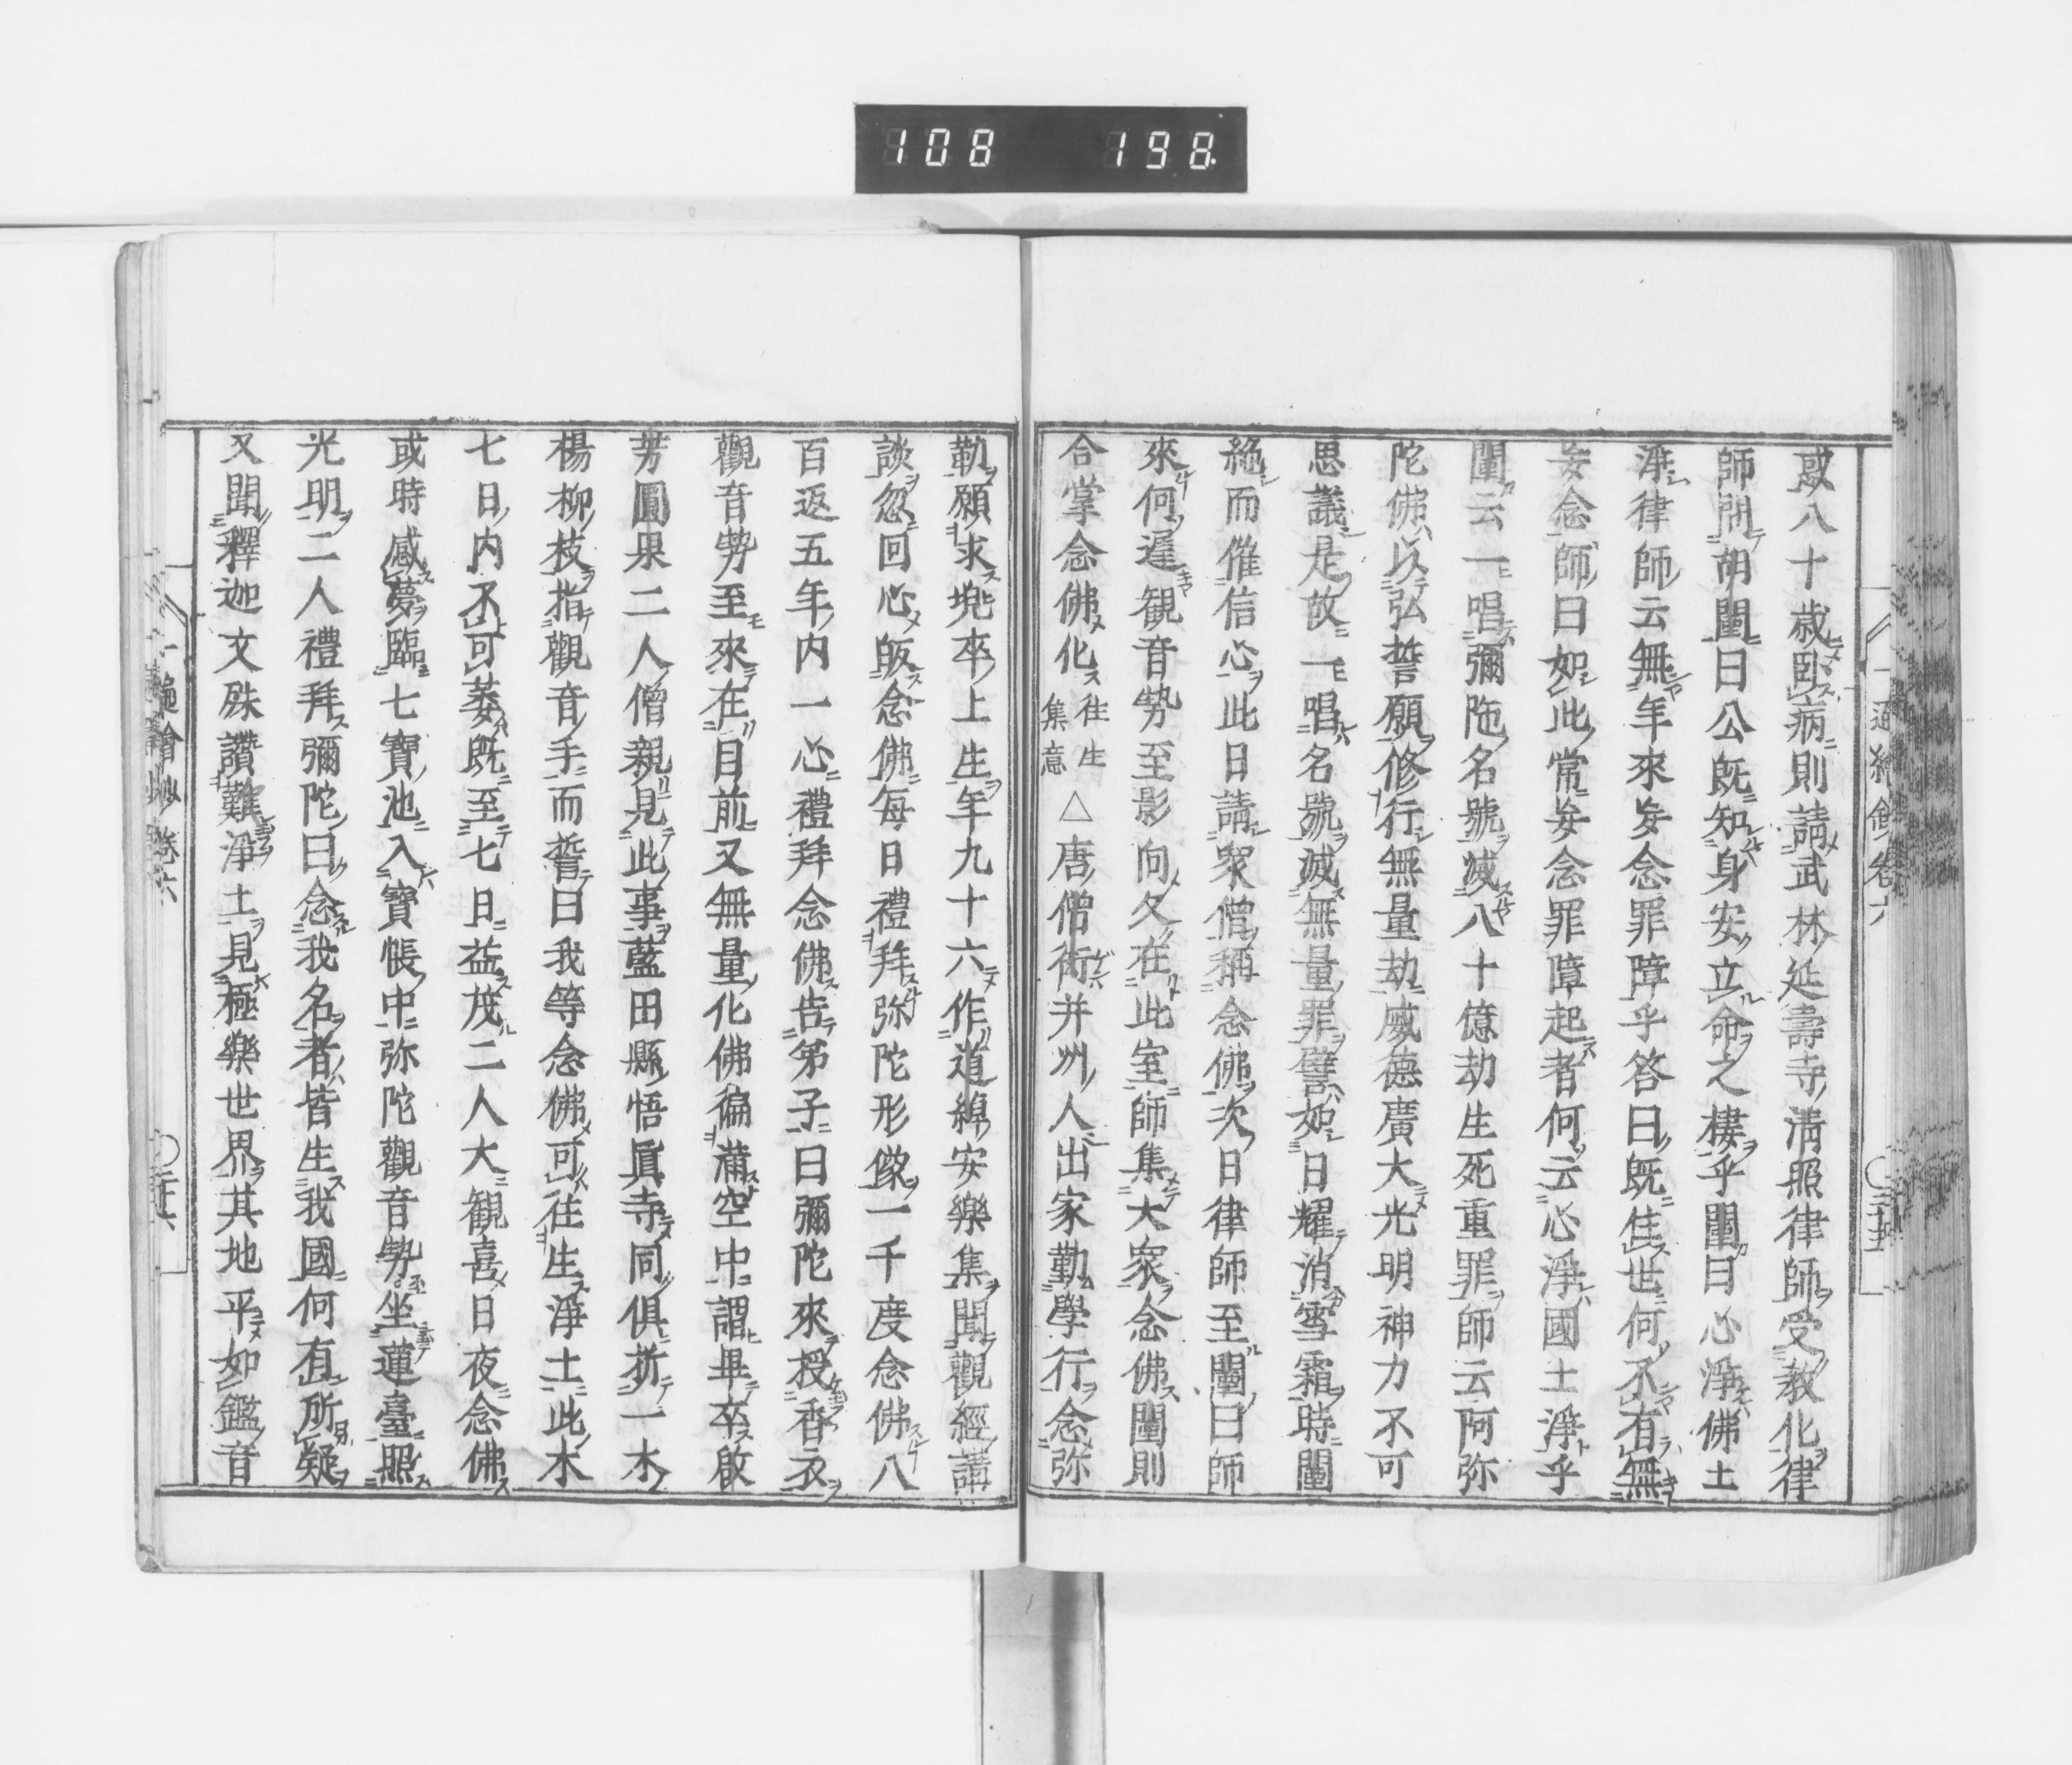 108 198
惑八十歳臥病則請武林延壽寺淸照律師受教化律
師問胡闉曰公既知身安立命之樓乎闉曰心淨佛土
淨律師云無年來妄念罪障乎答曰既住世何不有無
妄念師曰如此常妄念罪障起者何云心淨國土淨乎
闉云一唱彌陁名號滅八十億劫生死重罪師云阿弥
陀佛以弘誓願修行無量劫威德廣大光明神力不可
思議是故一唱名號滅無量罪譬如日耀消雪霜時闉
絶而催信心此日請衆僧稱念佛次日律師至闉曰師
來何遲観音勢至影向久在此室師集大衆念佛闉則
合掌念佛化往生集意△唐僧衒并州人出家勤學行念弥
勒願求兠卒上生年九十六作道綽安樂集聞觀經講
談忽回心皈念佛每日禮拜弥陀形像一千度念佛八
百返五年内一心禮拜念佛告弟子曰彌陀來授香衣
觀音勢至來在目前又無量化佛徧滿空中謂畢卒啟
芳圓果二人僧親見此事藍田縣悟眞寺同俱折一木
楊柳枝指觀音手而誓曰我等念佛可往生淨土此木
七日内不可萎既至七日益茂二人大観喜日夜念佛
或時感夢臨七寶池入寶帳中弥陀觀音勢坐蓮臺照
光明二人禮拜彌陀曰念我名者皆生我國何有所疑
又聞釋迦文殊讚難淨土見極樂世界其地平如鑑音
一遍繪鈔卷六